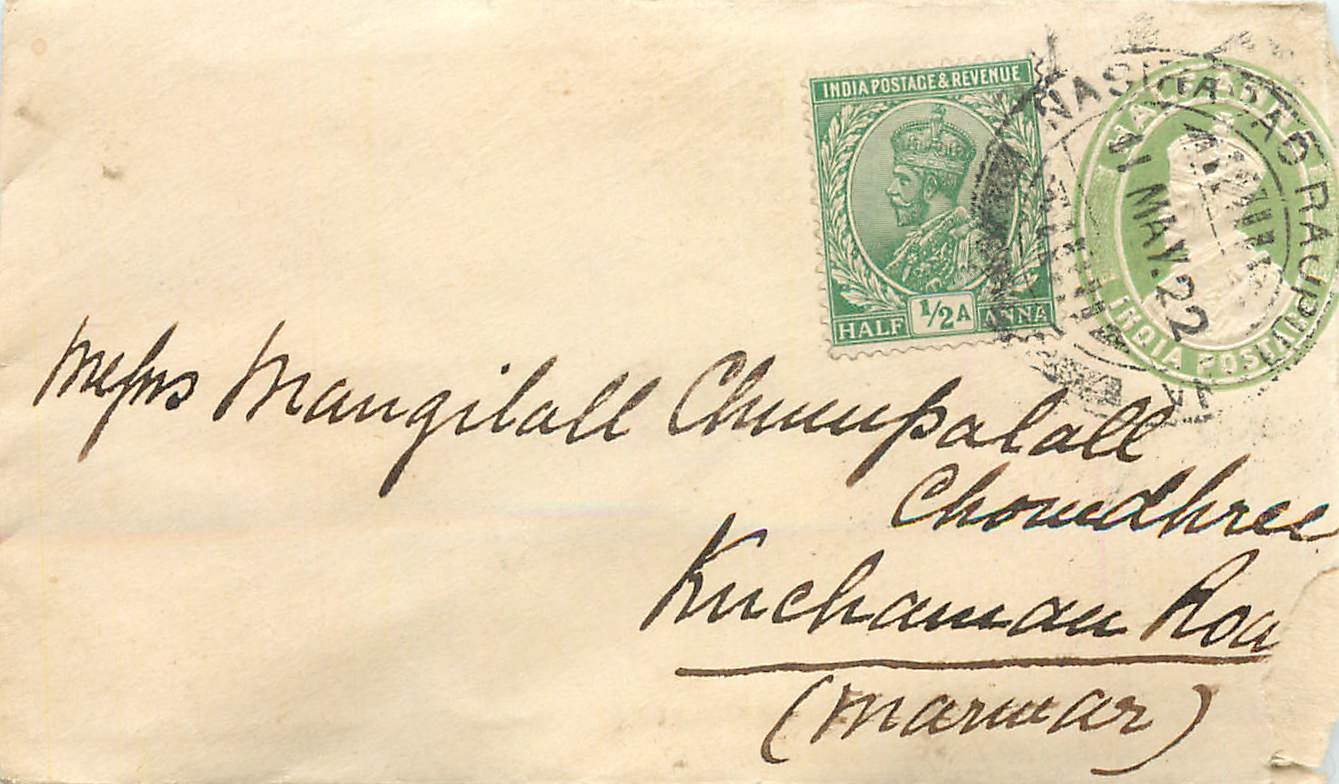 INDIA POSTAGE & REVENUE
HALF 1/2A ANNA
NASIRABAD RAJPUTANA
1 MAY. 22
HALF ANNA
INDIA POSTAGE
Messrs Mangilall Chumpalall
Chowdhree
Kuchaman Roa
(Marwar)